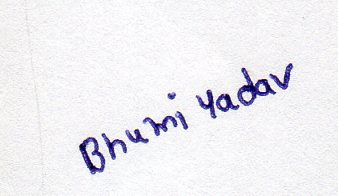 Bhumi Yadav